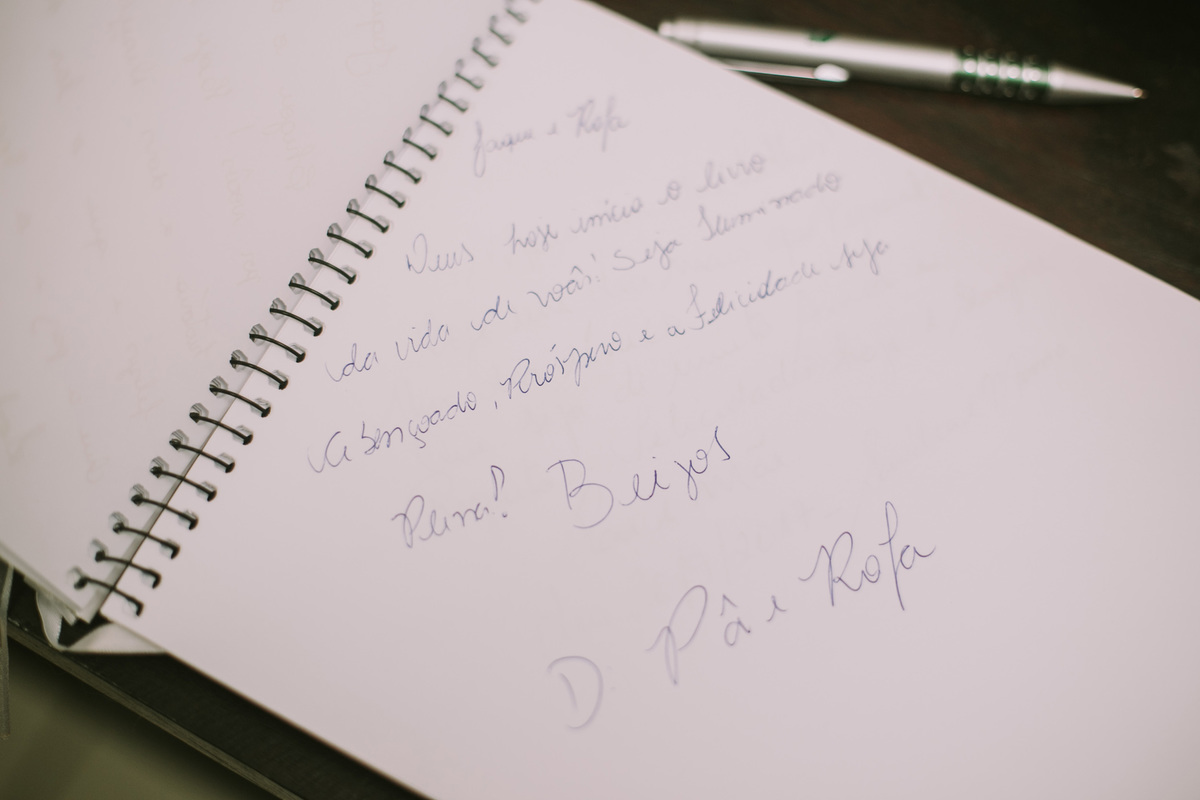 Jaque e Rafa
Deus hoje inicia o livro
da vida de vocês! Seja Iluminado
Abençoado, Próspero e a Felicidade seja
Plena! Beijos
D: Pâ e Rafa